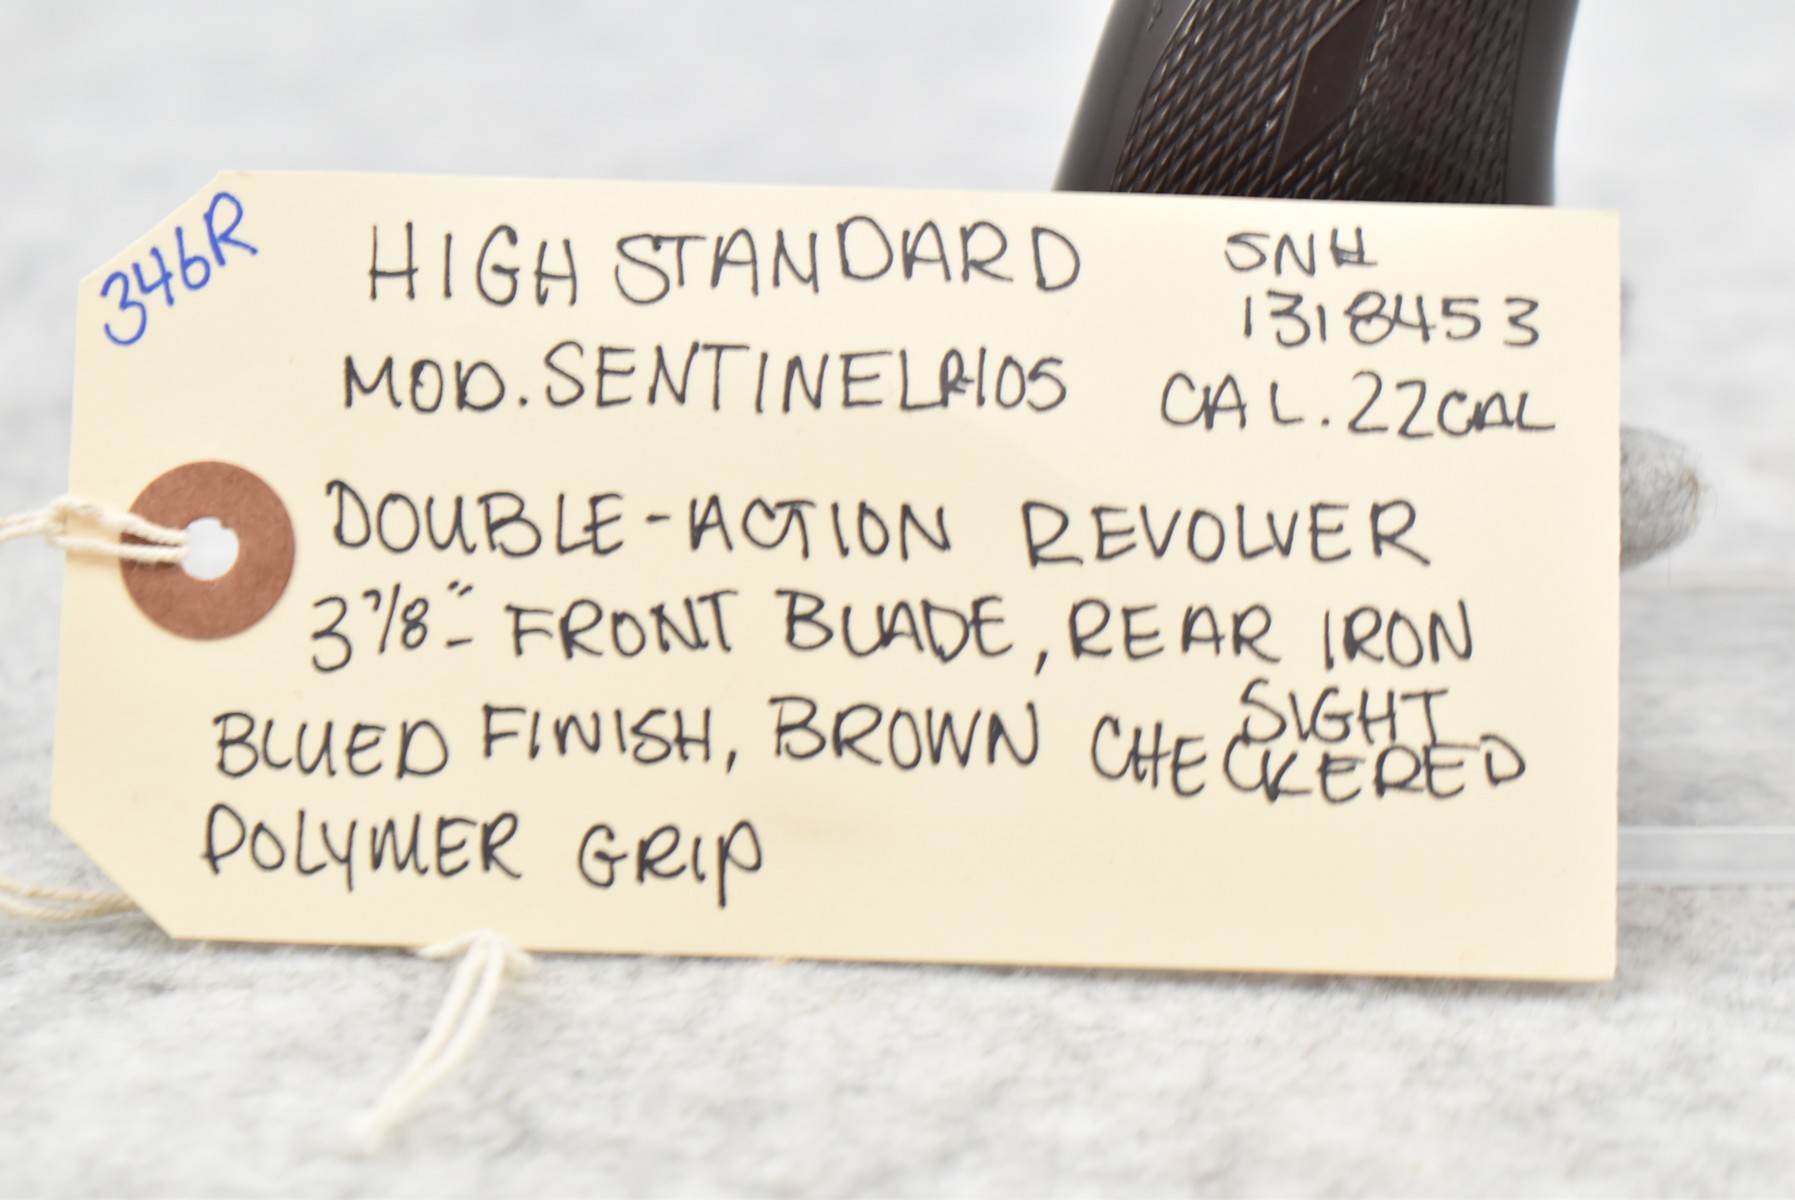 346R
HIGH STANDARD
MOD. SENTINEL R-105
SN#
1318453
CAL. 22CAL
DOUBLE-ACTION REVOLVER
3 7/8" - FRONT BLADE, REAR IRON
SIGHT
BLUED FINISH, BROWN CHECKERED
POLYMER GRIP